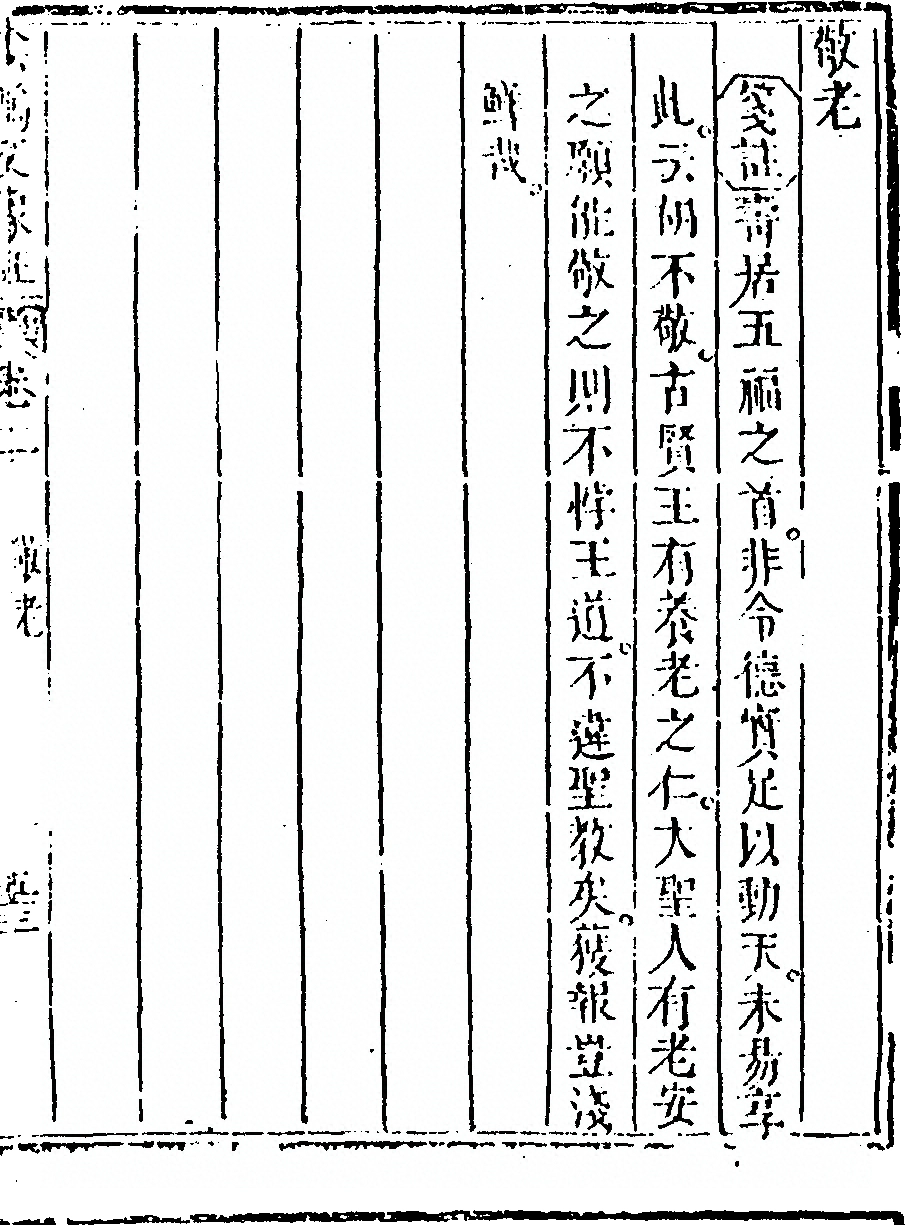 敬老
箋註壽居五福之首非令德實足以動天未易享
此云胡不敬古賢王有養老之仁大聖人有老安
之願能敬之則不悖王道不違聖教矣獲報豈淺
鮮哉
敬老